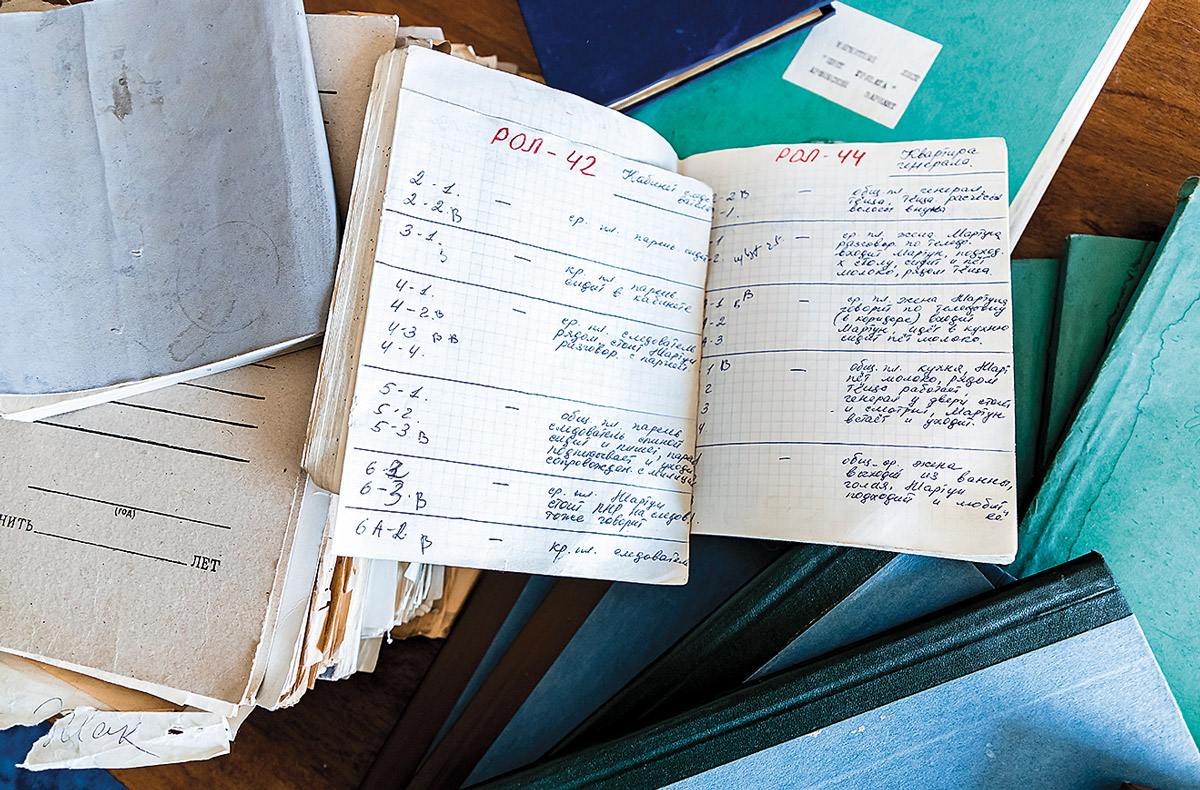 РОЛ-42
Кабинет следо
вателя
2-1.
2-2. В
—
ср. пл. парень сидит
3-1.
3
—
кр. пл. парень
сидит в кабинете
4-1.
4-2. В
4-3 В В
4-4.
—
ср. пл. следователь
рядом, стоит Мартун
разговор. с парнем
5-1.
5-2.
5-3 В
—
общ. пл. парень
следователь спиной
сидит и пишет, парень
подписывает и уходит
сопровожден. с милиц.
6-2
6-3. В
—
ср. пл. Мартун
стоит ПНР на следов.
тоже говорит
6А-2. В
—
кр. пл. следователь
РОЛ-44
Квартира
генерала.
2-2В
-1.
—
общ. пл. генерал,
тёща, тёща расчесы
волосы внука
1
2
—
ср. пл. жена Мартуна
разговор. по телеф.
входит Мартун, подход.
к столу, сидит и пёт
молоко, рядом тёща.
-1 В
-2
-3
—
ср. пл. жена Мартуна
говорит по телефону
(в коридоре) входит
Мартун, идёт в кухню
сидит пёт молоко.
1 В
2
3
4
—
общ. пл. кухня, Март
пёт молоко, рядом
тёща работает,
генерал у двери стоит
и смотрит, Мартун
встаёт и уходит.
—
общ. ср. жена
выходит из ванны,
голая, Мартун
подходит и любит
её
МОНТАЖНЫЙ ЛИСТ
АРМЯНСКИЙ ВАРИАНТ
(год)
НИТЬ
ЛЕТ